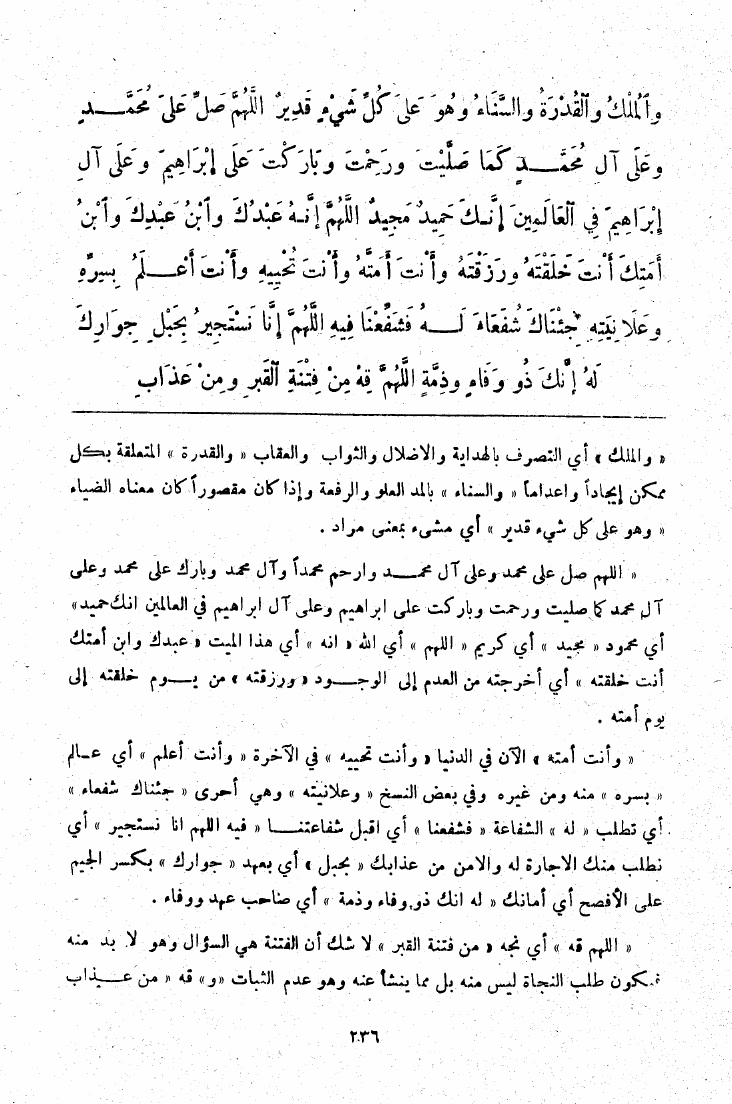 وَٱلْمُلْكُ وَٱلْقُدْرَةُ والسَّنَاءُ وَهُوَ عَلىَ كُلِّ شَيْءٍ قَدِيرٌ اللَّهُمَّ صَلِّ عَلىَ مُحَمَّـــدٍ
وَعَلَى آلِ مُحَمَّـــدٍ كَمَا صَلَّيْتَ ورَحِمْتَ وَبَارَكْتَ عَلَى إِبْرَاهِيمَ وَعَلَى آلِ
إِبْرَاهِيمَ فِي ٱلْعَالَمِينَ إِنَّـكَ حَمِيدٌ مَجِيدٌ اللَّهُمَّ إِنَّـهُ عَبْدُكَ وٱبْنُ عَبْدِكَ وٱبْنُ
أَمَتِكَ أَنْتَ خَلَقْتَهُ ورَزَقْتَهُ وأَنْتَ أَمَتَّهُ وأَنْتَ تُحْيِيهِ وأَنْتَ أَعْـــلَمُ بِسِرِّهِ
وَعَلَانِيَتِهِ جِئْنَاكَ شُفَعَاءَ لَـــهُ فَشَفِّعْنَا فِيهِ اللَّهُمَّ إِنَّا نَسْتَجِيرُ بِحَبْلِ جِوَارِكَ
لَهُ إِنَّكَ ذُو وَفَاءٍ وذِمَّةٍ اللَّهُمَّ قِهِ مِنْ فِتْنَةِ ٱلْقَبرِ ومِنْ عَذَابِ
« والملك » أي التصرف بالهداية والاضلال والثواب والعقاب « والقدرة » المتعلقة بكل
ممكن إيجاداً واعداماً « والسناء » بالمد العلو والرفعة وإذا كان مقصوراً كان معناه الضياء
« وهو على كل شيء قدير » أي مشيء بمعنى مراد .
« اللهم صل على محمد وعلى آل محمـــد وارحم محمداً وآل محمد وبارك على محمد وعلى
آل محمد كما صليت ورحمت وباركت على ابراهيم وعلى آل ابراهيم في العالمين انك حميد»
أي محمود « مجيد » أي كريم « اللهم » أي الله « انه » أي هذا الميت « عبدك وابن أمتك
أنت خلقته » أي أخرجته من العدم إلى الوجـــود « ورزقته » من يـــوم خلقته إلى
يوم أمته .
« وأنت أمته » الآن في الدنيا « وأنت تحييه » في الآخرة « وأنت أعلم » أي عـالم
« بسره » منه ومن غيره وفي بعض النسخ « وعلانيته » وهي أحرى « جئناك شفعاء »
أي تطلب « له » الشفاعة « فشفعنا » أي اقبل شفاعتنـــا « فيه اللهم انا نستجير » أي
نطلب منك الاجارة له والامن من عذابك « بحبل » أي بعهد « جوارك » بكسر الجيم
على الأفصح أي أمانك « له انك ذو وفاء وذمة » أي صاحب عهد ووفاء .
« اللهم قه » أي نجه « من فتنة القبر » لا شك أن الفتنة هي السؤال وهو لا بد منه
فيكون طلب النجاة ليس منه بل مما ينشأ عنه وهو عدم الثبات «و» قه « من عـــذاب
٢٣٦